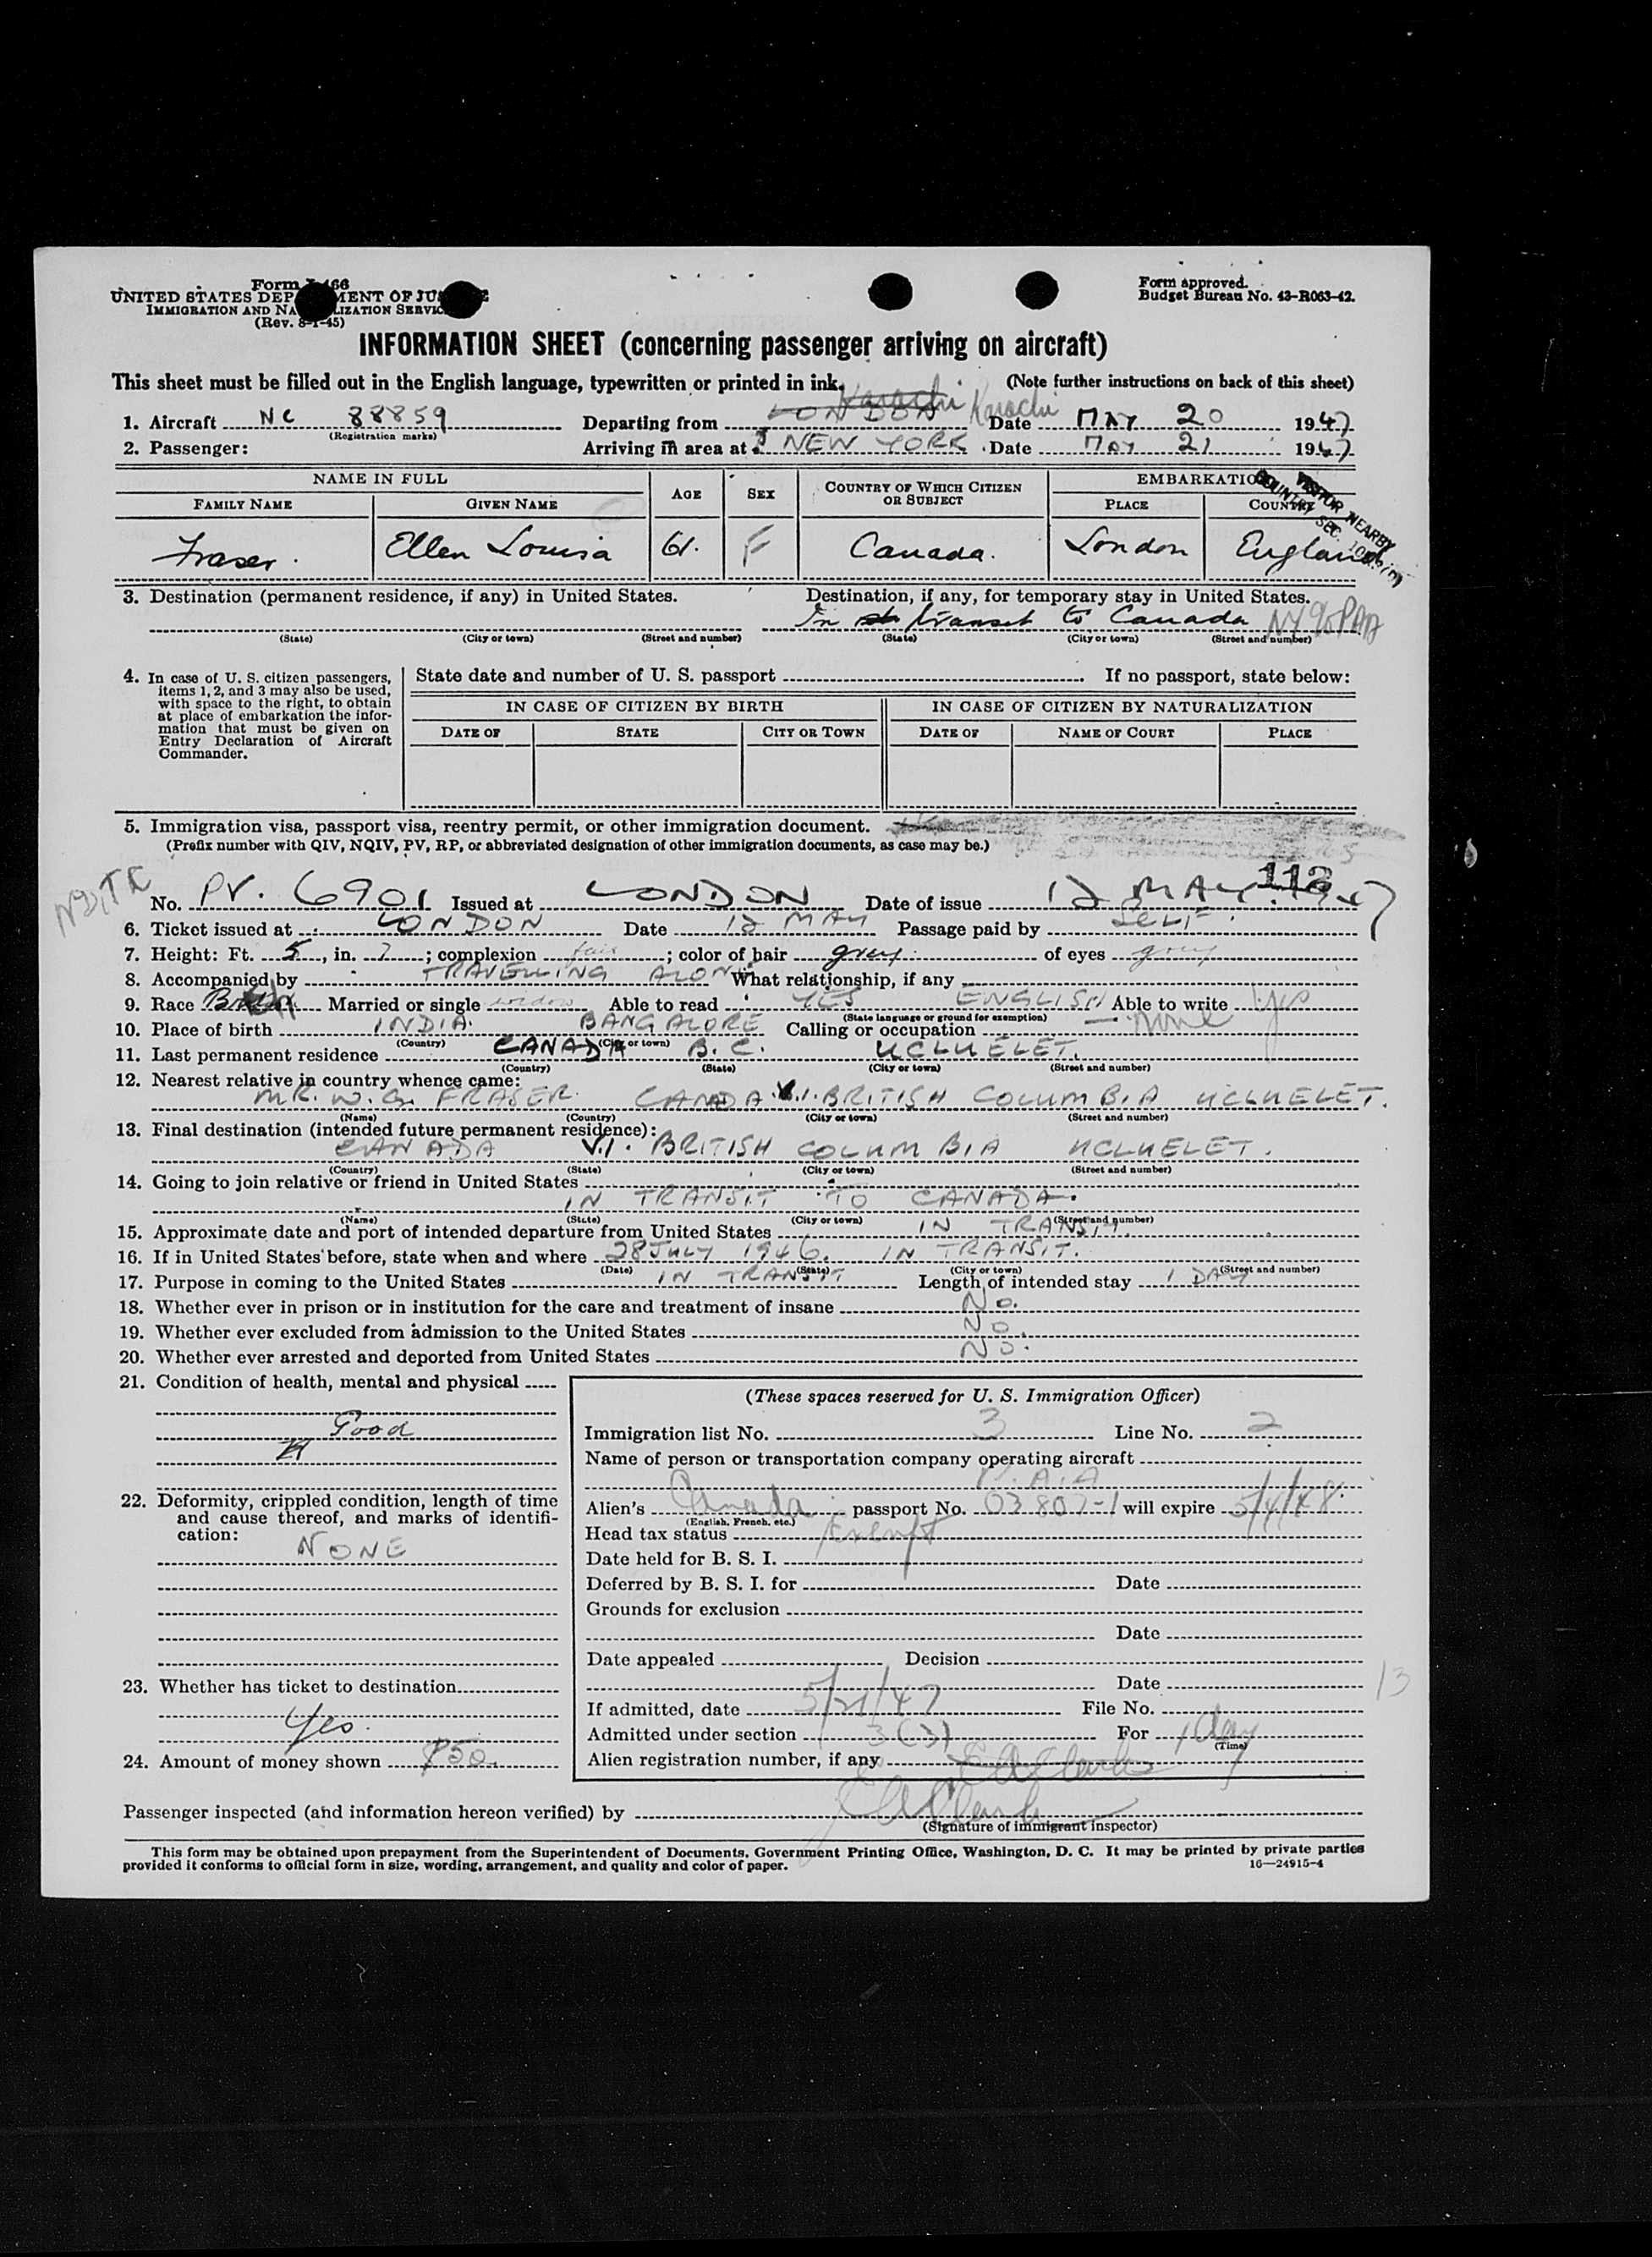 Form I-466
UNITED STATES DEPARTMENT OF JUSTICE
IMMIGRATION AND NATURALIZATION SERVICE
(Rev. 8-1-45)
Form approved.
Budget Bureau No. 43-R063-42.
INFORMATION SHEET (concerning passenger arriving on aircraft)
This sheet must be filled out in the English language, typewritten or printed in ink. (Note further instructions on back of this sheet)
Karachi
1. Aircraft NC 88859 Departing from LONDON Karachi Date MAY 20 1947
(Registration marks)
2. Passenger: Arriving in area at NEW YORK Date MAY 21 1947
NAME IN FULL AGE SEX COUNTRY OF WHICH CITIZEN OR SUBJECT EMBARKATION
FAMILY NAME GIVEN NAME PLACE COUNTRY
VISITOR NEARBY
COUNTRY SEC.
Fraser. Ellen Louisa 61. F Canada. London England
3. Destination (permanent residence, if any) in United States. Destination, if any, for temporary stay in United States.
In transit to Canada NY % PAA
(State) (City or town) (Street and number) (State) (City or town) (Street and number)
4. In case of U. S. citizen passengers, items 1, 2, and 3 may also be used, with space to the right, to obtain at place of embarkation the information that must be given on Entry Declaration of Aircraft Commander.
State date and number of U. S. passport If no passport, state below:
IN CASE OF CITIZEN BY BIRTH IN CASE OF CITIZEN BY NATURALIZATION
DATE OF STATE CITY OR TOWN DATE OF NAME OF COURT PLACE
5. Immigration visa, passport visa, reentry permit, or other immigration document.
(Prefix number with QIV, NQIV, PV, RP, or abbreviated designation of other immigration documents, as case may be.)
112
No. PV. 6901 Issued at LONDON Date of issue 12 MAY 1947
6. Ticket issued at LONDON Date 12 MAY Passage paid by SELF.
7. Height: Ft. 5, in. 7; complexion fair; color of hair grey. of eyes grey
8. Accompanied by TRAVELLING ALONE What relationship, if any
9. Race Married or single widow Able to read YES ENGLISH Able to write yes
(State language or ground for exemption)
10. Place of birth INDIA. BANGALORE Calling or occupation — none
(Country) (City or town)
11. Last permanent residence CANADA B.C. UCLUELET.
(Country) (State) (City or town) (Street and number)
12. Nearest relative in country whence came:
MR. W. G. FRASER. CANADA. V.I. BRITISH COLUMBIA UCLUELET.
(Name) (Country) (City or town) (Street and number)
13. Final destination (intended future permanent residence):
CANADA V.I. BRITISH COLUMBIA UCLUELET.
(Country) (State) (City or town) (Street and number)
14. Going to join relative or friend in United States
IN TRANSIT TO CANADA.
(Name) (State) (City or town) (Street and number)
15. Approximate date and port of intended departure from United States IN TRANSIT.
16. If in United States before, state when and where 28 JULY 1946. IN TRANSIT.
(Date) (State) (City or town) (Street and number)
17. Purpose in coming to the United States IN TRANSIT Length of intended stay 1 DAY
18. Whether ever in prison or in institution for the care and treatment of insane No.
19. Whether ever excluded from admission to the United States No.
20. Whether ever arrested and deported from United States No.
21. Condition of health, mental and physical
Good
22. Deformity, crippled condition, length of time and cause thereof, and marks of identification:
NONE
23. Whether has ticket to destination
Yes.
24. Amount of money shown $50.
(These spaces reserved for U. S. Immigration Officer)
Immigration list No. 3 Line No. 2
Name of person or transportation company operating aircraft
P.A.A
Alien's Canada passport No. 03 807-1 will expire 5/4/48.
(English, French, etc.)
Head tax status Exempt
Date held for B. S. I.
Deferred by B. S. I. for Date
Grounds for exclusion
Date
Date appealed Decision
Date
13
If admitted, date 5/21/47 File No.
Admitted under section 3(3) For 1 day
(Time)
Alien registration number, if any EA Clark
Passenger inspected (and information hereon verified) by EA Clark
(Signature of immigrant inspector)
This form may be obtained upon prepayment from the Superintendent of Documents, Government Printing Office, Washington, D. C. It may be printed by private parties
provided it conforms to official form in size, wording, arrangement, and quality and color of paper. 16—24915-4